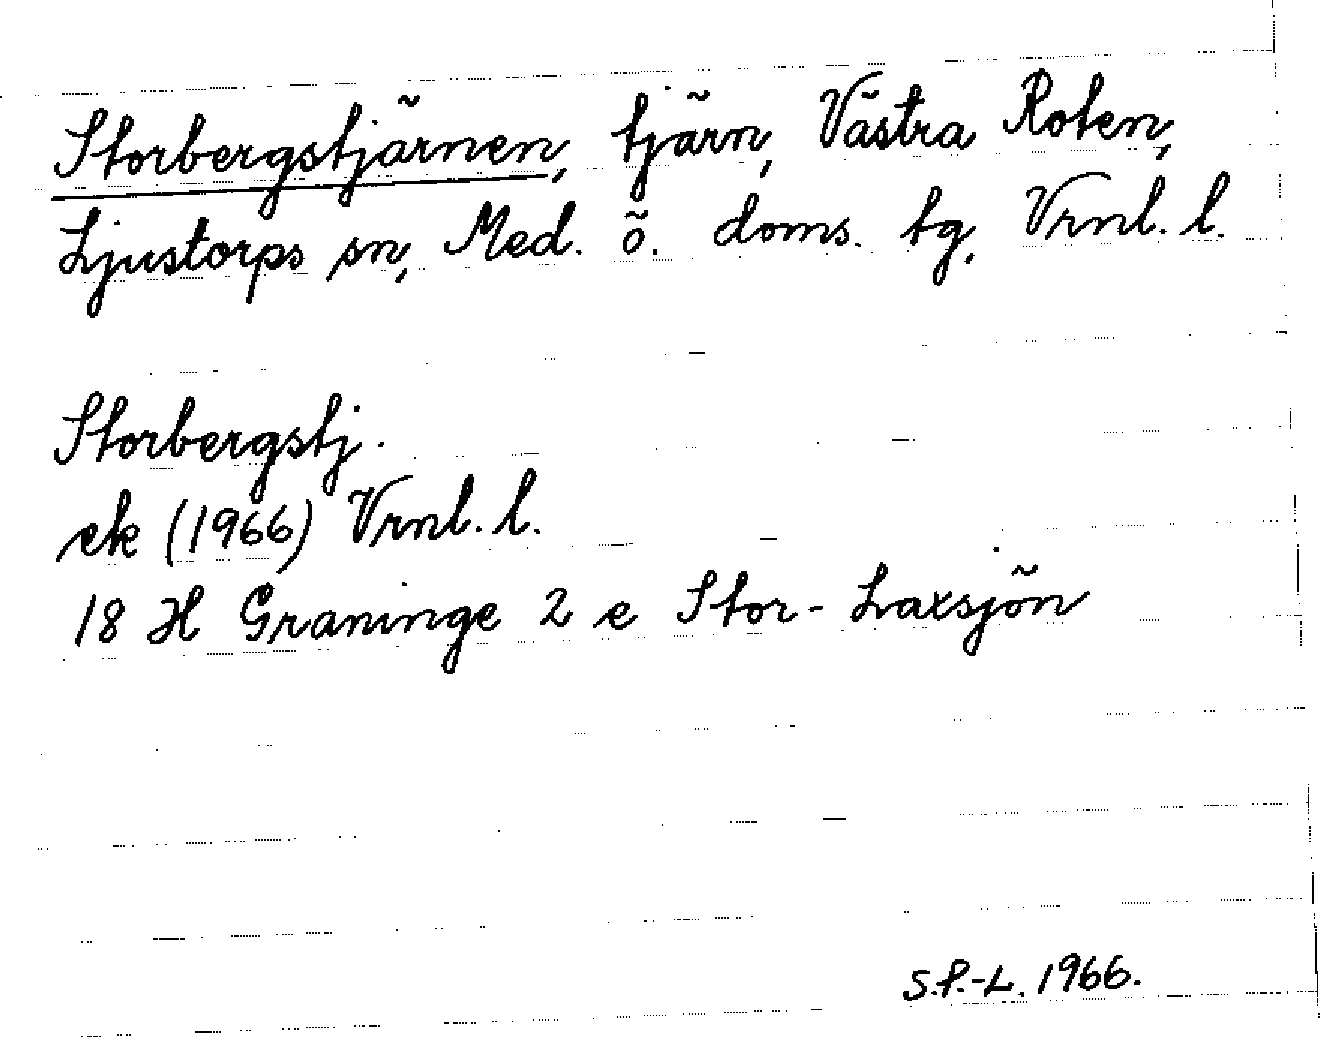 Storbergstjärnen, tjärn, Västra Roten,
Ljustorps sn, Med. ö. doms. tg, Vrnl. l.
Storbergstj.
ek (1966) Vrnl. l.
18 H Graninge 2 e Stor-Laxsjön
S.P.-L. 1966.